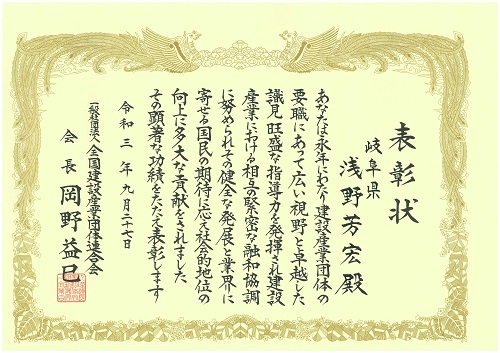 表彰状
岐阜県
浅野芳宏殿
あなたは永年にわたり建設産業団体の
要職にあって広い視野と卓越した
識見旺盛な指導力を発揮され建設
産業における相互の緊密な融和協調
に努められその健全な発展と業界に
寄せる国民の期待に応え社会的地位の
向上に多大な貢献をされました
その顕著な功績をたたえ表彰します
令和三年九月二十七日
一般社団法人全国建設産業団体連合会
会長 岡野益巳